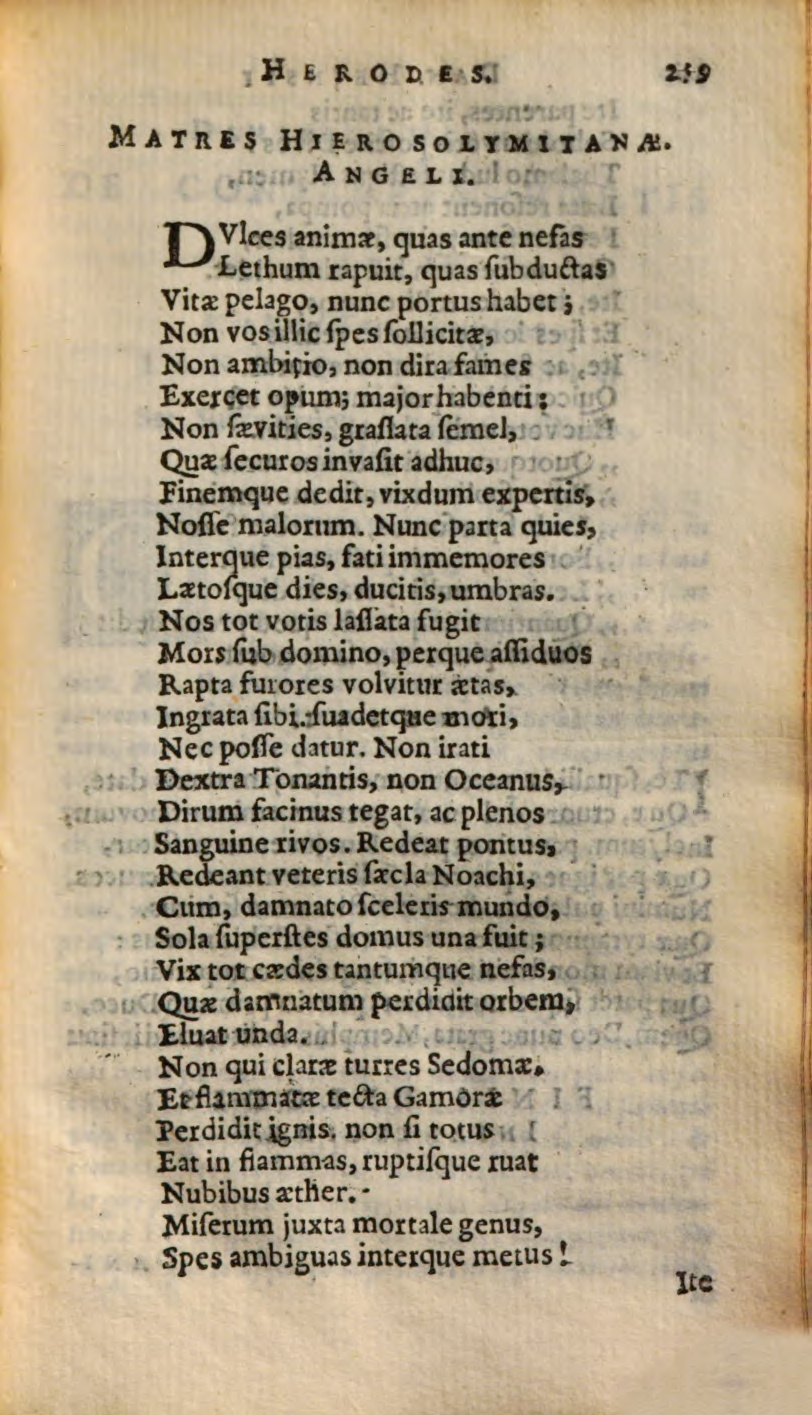 HERODES. 239
MATRES HIEROSOLYMITANÆ.
ANGELI.
DVlces animæ, quas ante nefas
Lethum rapuit, quas ſubductas
Vitæ pelago, nunc portus habet;
Non vos illic ſpes ſollicitæ,
Non ambitio, non dira fames
Exercet opum; major habenti;
Non ſævities, graſſata ſemel,
Quæ ſecuros invaſit adhuc,
Finemque dedit, vixdum expertis,
Noſſe malorum. Nunc parta quies,
Interque pias, fati immemores
Lætoſque dies, ducitis, umbras.
Nos tot votis laſſata fugit
Mors ſub domino, perque aſſiduos
Rapta furores volvitur ætas,
Ingrata ſibi. ſuadetque mori,
Nec poſſe datur. Non irati
Dextra Tonantis, non Oceanus,
Dirum facinus tegat, ac plenos
Sanguine rivos. Redeat pontus,
Redeant veteris ſæcla Noachi,
Cum, damnato ſceleris mundo,
Sola ſuperſtes domus una fuit;
Vix tot cædes tantumque nefas,
Quæ damnatum perdidit orbem,
Eluat unda.
Non qui claræ turres Sedomæ.
Et flammatæ tecta Gamoræ
Perdidit ignis. non ſi totus
Eat in flammas, ruptiſque ruat
Nubibus æther.
Miſerum juxta mortale genus,
Spes ambiguas interque metus!
Ite